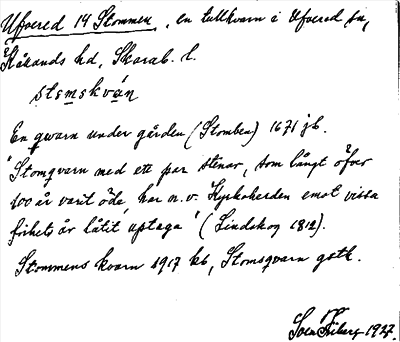 Ufvered 14 Stommen, en tullkvarn i Ufvered sn,
Kåkinds hd, Skarab. l.
stemskván
En qvarn under gården (Stomben) 1671 jb.
"Stomqvarn med ett par stenar, som långt öfver
100 år varit öde, har n. v. Kyrkoherden emot vissa
frihets år låtit uptaga" (Lindskog 1812).
Stommens kvarn 1917 kb, Stomsqvarn gstk.
Sven Friberg 1927.